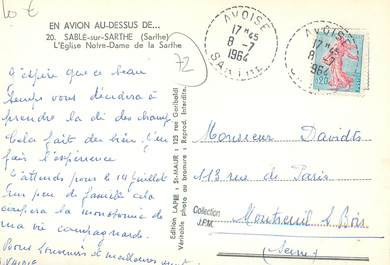 10 €
EN AVION AU-DESSUS DE...
20. SABLÉ-sur-SARTHE (Sarthe)
L'Eglise Notre-Dame de la Sarthe
72
AVOISE
17 H 45
8 -7
1964
SARTHE
AVOISE
17 H 45
8 -7
1964
J'espère que ce beau
temps vous décidera à
prendre la clé des champs
Cela fait du bien, j'en
fais l'expérience
J'attends pour le 14 juillet
un peu de famille cela
coupera la monotonie de
ma vie campagnarde.
Bons souvenirs et meilleures
Edition LAPIE : St-MAUR : 125 rue Garibaldi
Véritable photo au bromure : Reprod. Interdite.
Collection
J.P.M.
Monsieur Davidts
113 rue de Paris
Montreuil s/ Bois
(Seine)